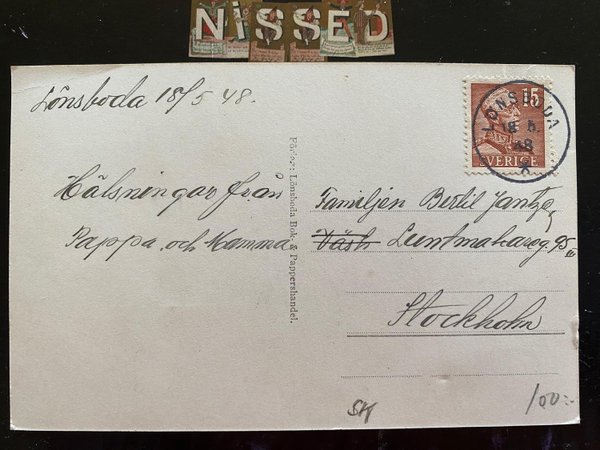 NiSSED
Lönsboda 18/5 48.
15
SVERIGE
LÖNSBODA
18 5.
48
Hälsningar från
Pappa och Mamma
Förlag: Lönsboda Bok & Pappershandel.
Familjen Bertil Jantze
Väst Luntmakareg 95 III
Stockholm
SK
100:-